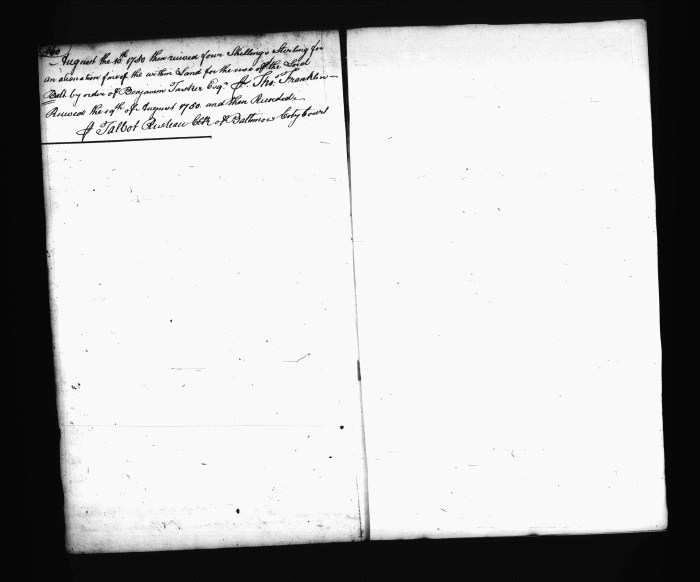 August the 10th 1750 then received four Shillings Sterling for
an alienation fine of the within Land for the use of the Lord
Balt. by order of Benjamin Tasker Esqr. Tho.s Franklin
Received the 14th of August 1750. and then Recorded.
Talbot Risteau Clk of Baltimore Coty Court